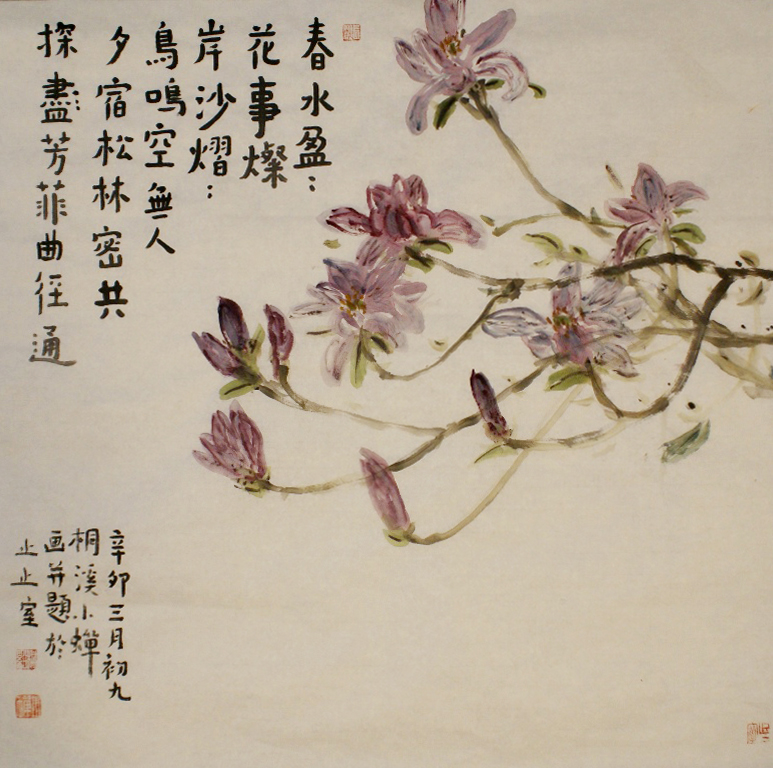 春水盈：
花事燦
岸沙熠：
鳥鳴空無人
夕宿松林密共
探盡芳菲曲径通
辛卯三月初九
桐溪小蟬
画并題於
止止室